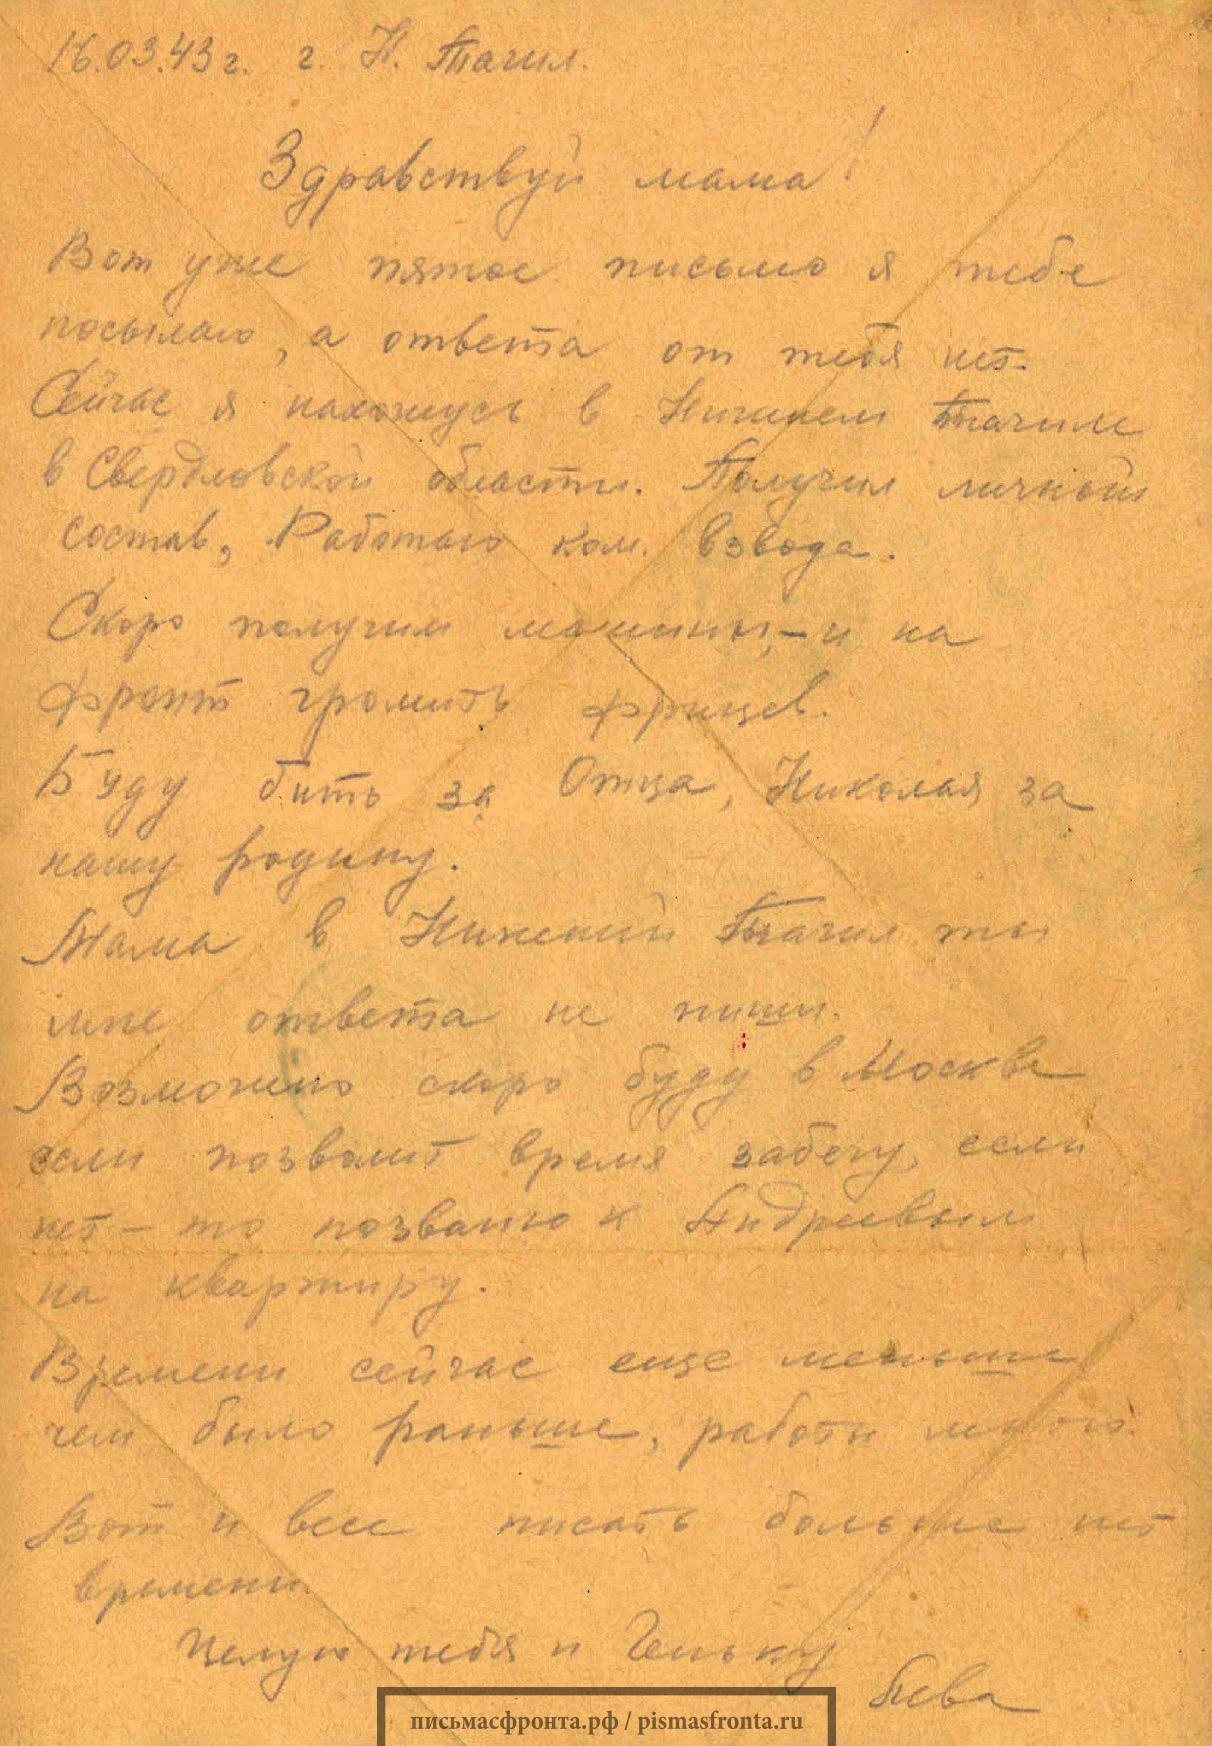 16.03.43 г. г. Н. Тагил.
Здравствуй мама!
Вот уже пятое письмо я тебе
посылаю, а ответа от тебя нет.
Сейчас я нахожусь в Нижнем Тагиле
в Свердловской области. Получил личный
состав, Работаю ком. взвода.
Скоро получим машины, – и на
фронт громить фрицев.
Буду бить за Отца, Николая за
нашу родину.
Мама в Нижний Тагил ты
мне ответа не пиши.
Возможно скоро буду в Москве
если позволит время забегу, если
нет – то позваню к Андреевым
на квартиру.
Времени сейчас еще меньше
чем было раньше, работы много.
Вот и все писать больше нет
времени.
Целую тебя и Геньку
Лева
письмасфронта.рф / pismasfronta.ru